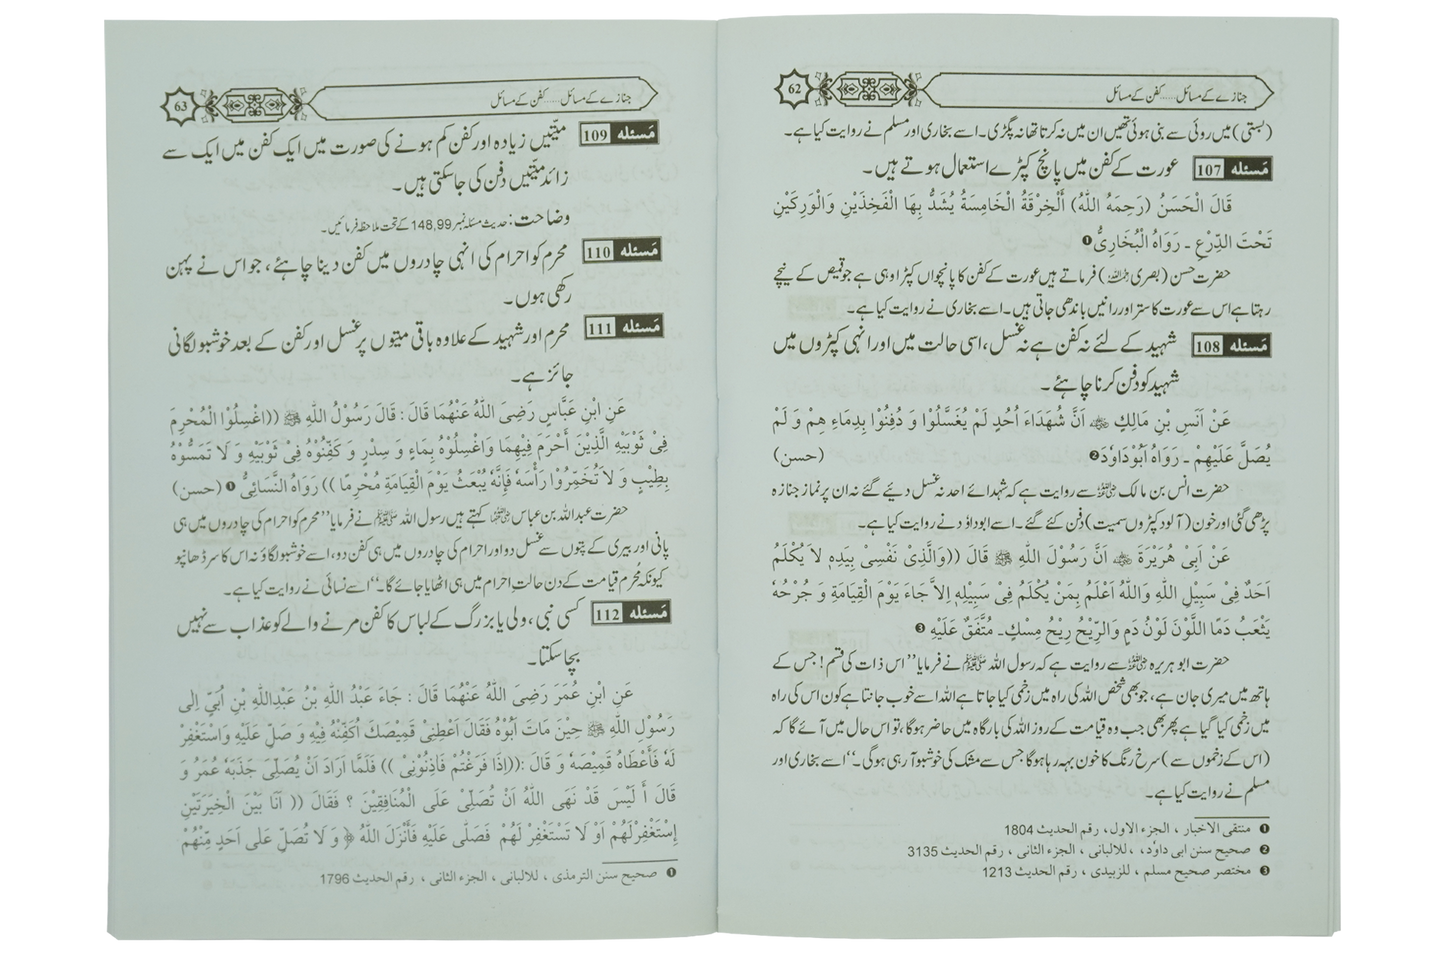 62
جنازے کے مسائل......کفن کے مسائل
(بستی) میں روئی سے بنی ہوئی تھیں ان میں نہ کرتا تھا نہ پگڑی۔ اسے بخاری اور مسلم نے روایت کیا ہے۔
مَسئله 107 عورت کے کفن میں پانچ کپڑے استعمال ہوتے ہیں۔
قَالَ الْحَسَنُ (رَحِمَهُ اللّٰهُ) اَلْخِرْقَةُ الْخَامِسَةُ يُشَدُّ بِهَا الْفَخِذَيْنِ وَالْوَرِكَيْنِ
تَحْتَ الدِّرْعِ ۔ رَوَاهُ الْبُخَارِىُّ ❶
حضرت حسن (بصری رحمہ اللہ) فرماتے ہیں عورت کے کفن کا پانچواں کپڑا وہی ہے جو قمیص کے نیچے
رہتا ہے اس سے عورت کا ستر اور رانیں باندھی جاتی ہیں۔ اسے بخاری نے روایت کیا ہے۔
مَسئله 108 شہید کے لئے نہ کفن ہے نہ غسل، اسی حالت میں اور انہی کپڑوں میں
شہید کو دفن کرنا چاہئے۔
عَنْ اَنَسِ بْنِ مَالِكٍ ﷜ اَنَّ شُهَدَاءَ اُحُدٍ لَمْ يُغَسَّلُوْا وَ دُفِنُوْا بِدِمَاءِ هِمْ وَ لَمْ
يُصَلَّ عَلَيْهِمْ ۔ رَوَاهُ اَبُوْدَاوٗدَ ❷ (حسن)
حضرت انس بن مالک ﷜ سے روایت ہے کہ شہدائے احد نہ غسل دیئے گئے نہ ان پر نماز جنازہ
پڑھی گئی اور خون (آلود کپڑوں سمیت) دفن کئے گئے۔ اسے ابوداؤد نے روایت کیا ہے۔
عَنْ اَبِىْ هُرَيْرَةَ ﷜ اَنَّ رَسُوْلَ اللّٰهِ ﷺ قَالَ ((وَالَّذِىْ نَفْسِىْ بِيَدِهٖ لَا يُكْلَمُ
اَحَدٌ فِىْ سَبِيْلِ اللّٰهِ وَاللّٰهُ اَعْلَمُ بِمَنْ يُكْلَمُ فِىْ سَبِيْلِهٖ اِلاَّ جَاءَ يَوْمَ الْقِيَامَةِ وَ جُرْحُهٗ
يَثْعَبُ دَمًا اللَّوْنَ لَوْنُ دَمٍ وَالرِّيْحُ رِيْحُ مِسْكٍ۔ مُتَّفَقٌ عَلَيْهِ ❸
حضرت ابو ہریرہ ﷜ سے روایت ہے کہ رسول اللہ ﷺ نے فرمایا ”اس ذات کی قسم! جس کے
ہاتھ میں میری جان ہے، جو بھی شخص اللہ کی راہ میں زخمی کیا جاتا ہے اللہ اسے خوب جانتا ہے کون اس کی راہ
میں زخمی کیا گیا ہے پھر بھی جب وہ قیامت کے روز اللہ کی بارگاہ میں حاضر ہوگا، تو اس حال میں آئے گا کہ
(اس کے زخموں سے) سرخ رنگ کا خون بہہ رہا ہوگا جس سے مشک کی خوشبو آ رہی ہوگی۔“ اسے بخاری اور
مسلم نے روایت کیا ہے۔
❶ منتقى الاخبار ، الجزء الاول، رقم الحديث 1804
❷ صحيح سنن ابى داؤد، ، للالبانى ، الجزء الثانى ، رقم الحديث 3135
❸ مختصر صحيح مسلم ، للزبيدى ، رقم الحديث 1213
63
جنازے کے مسائل......کفن کے مسائل
مَسئله 109 میّتیں زیادہ اور کفن کم ہونے کی صورت میں ایک کفن میں ایک سے
زائد میّتیں دفن کی جاسکتی ہیں۔
وضاحت: حدیث مسئلہ نمبر 148,99 کے تحت ملاحظہ فرمائیں۔
مَسئله 110 محرم کو احرام کی انہی چادروں میں کفن دینا چاہئے، جو اس نے پہن
رکھی ہوں۔
مَسئله 111 محرم اور شہید کے علاوہ باقی میتوں پر غسل اور کفن کے بعد خوشبو لگانی
جائز ہے۔
عَنِ ابْنِ عَبَّاسٍ رَضِىَ اللّٰهُ عَنْهُمَا قَالَ : قَالَ رَسُوْلُ اللّٰهِ ﷺ ((اغْسِلُوْا الْمُحْرِمَ
فِىْ ثَوْبَيْهِ الَّذَيْنِ أَحْرَمَ فِيْهِمَا وَاغْسِلُوْهُ بِمَاءٍ وَ سِدْرٍ وَ كَفِّنُوْهُ فِىْ ثَوْبَيْهِ وَ لَا تَمَسُّوْهُ
بِطِيْبٍ وَ لَا تُخَمِّرُوْا رَأْسَهٗ فَإِنَّهٗ يُبْعَثُ يَوْمَ الْقِيَامَةِ مُحْرِمًا )) رَوَاهُ النَّسَائِىُّ ❶ (حسن)
حضرت عبداللہ بن عباس ﷠ کہتے ہیں رسول اللہ ﷺ نے فرمایا ”محرم کو احرام کی چادروں میں ہی
پانی اور بیری کے پتوں سے غسل دو اور احرام کی چادروں میں ہی کفن دو، اسے خوشبو لگاؤ نہ اس کا سر ڈھانپو
کیونکہ محرم قیامت کے دن حالتِ احرام میں ہی اٹھایا جائے گا۔“ اسے نسائی نے روایت کیا ہے۔
مَسئله 112 کسی نبی، ولی یا بزرگ کے لباس کا کفن مرنے والے کو عذاب سے نہیں
بچا سکتا۔
عَنِ ابْنِ عُمَرَ رَضِىَ اللّٰهُ عَنْهُمَا قَالَ : جَاءَ عَبْدُ اللّٰهِ بْنُ عَبْدِاللّٰهِ بْنِ اُبَيٍّ اِلٰى
رَسُوْلِ اللّٰهِ ﷺ حِيْنَ مَاتَ اَبُوْهُ فَقَالَ اَعْطِنِىْ قَمِيْصَكَ اُكَفِّنْهُ فِيْهِ وَ صَلِّ عَلَيْهِ وَاسْتَغْفِرْ
لَهٗ فَأَعْطَاهُ قَمِيْصَهٗ وَ قَالَ :((اِذَا فَرَغْتُمْ فَاٰذِنُوْنِىْ )) فَلَمَّا اَرَادَ اَنْ يُصَلِّىَ جَذَبَهٗ عُمَرُ وَ
قَالَ أَ لَيْسَ قَدْ نَهَى اللّٰهُ اَنْ تُصَلِّىَ عَلَى الْمُنَافِقِيْنَ ؟ فَقَالَ (( اَنَا بَيْنَ الْخِيَرَتَيْنِ
اِسْتَغْفِرْلَهُمْ اَوْ لَا تَسْتَغْفِرْ لَهُمْ فَصَلّٰى عَلَيْهِ فَأَنْزَلَ اللّٰهُ ﴿ وَ لَا تُصَلِّ عَلٰى اَحَدٍ مِّنْهُمْ
❶ صحيح سنن الترمذى ، للالبانى ، الجزء الثانى ، رقم الحديث 1796